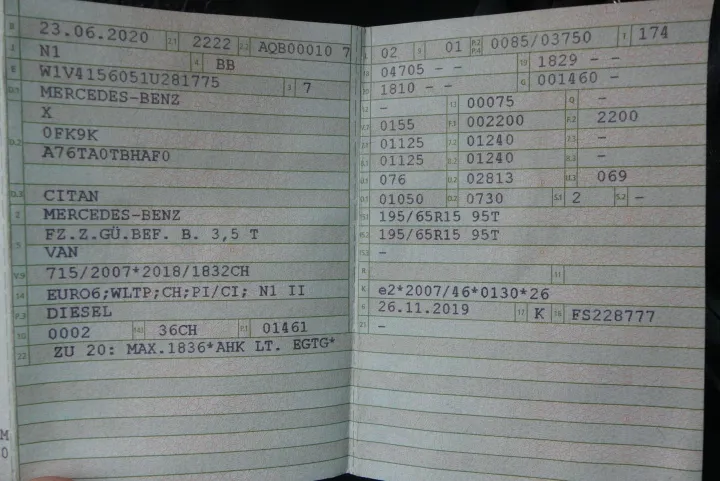 B 23.06.2020 2.1 2222 2.2 AQB00010 7
J N1 4 BB
E W1V4156051U281775 3 7
D.1 MERCEDES-BENZ
X
D.2 0FK9K
A76TA0TBHAF0
D.3 CITAN
2 MERCEDES-BENZ
5 FZ.Z.GÜ.BEF. B. 3,5 T
VAN
V.9 715/2007*2018/1832CH
14 EURO6;WLTP;CH;PI/CI; N1 II
P.3 DIESEL
10 0002 14.1 36CH P.1 01461
22 ZU 20: MAX.1836*AHK LT. EGTG*
L 02 9 01 P.2 P.4 0085/03750 T 174
18 04705 - - 19 1829 - -
20 1810 - - G 001460 -
12 - 13 00075 Q -
V.7 0155 F.1 002200 F.2 2200
7.1 01125 7.2 01240 7.3 -
8.1 01125 8.2 01240 8.3 -
U.1 076 U.2 02813 U.3 069
O.1 01050 O.2 0730 S.1 2 S.2 -
15.1 195/65R15 95T
15.2 195/65R15 95T
15.3 -
R 11
K e2*2007/46*0130*26
6 26.11.2019 17 K 16 FS228777
21 -
M
0